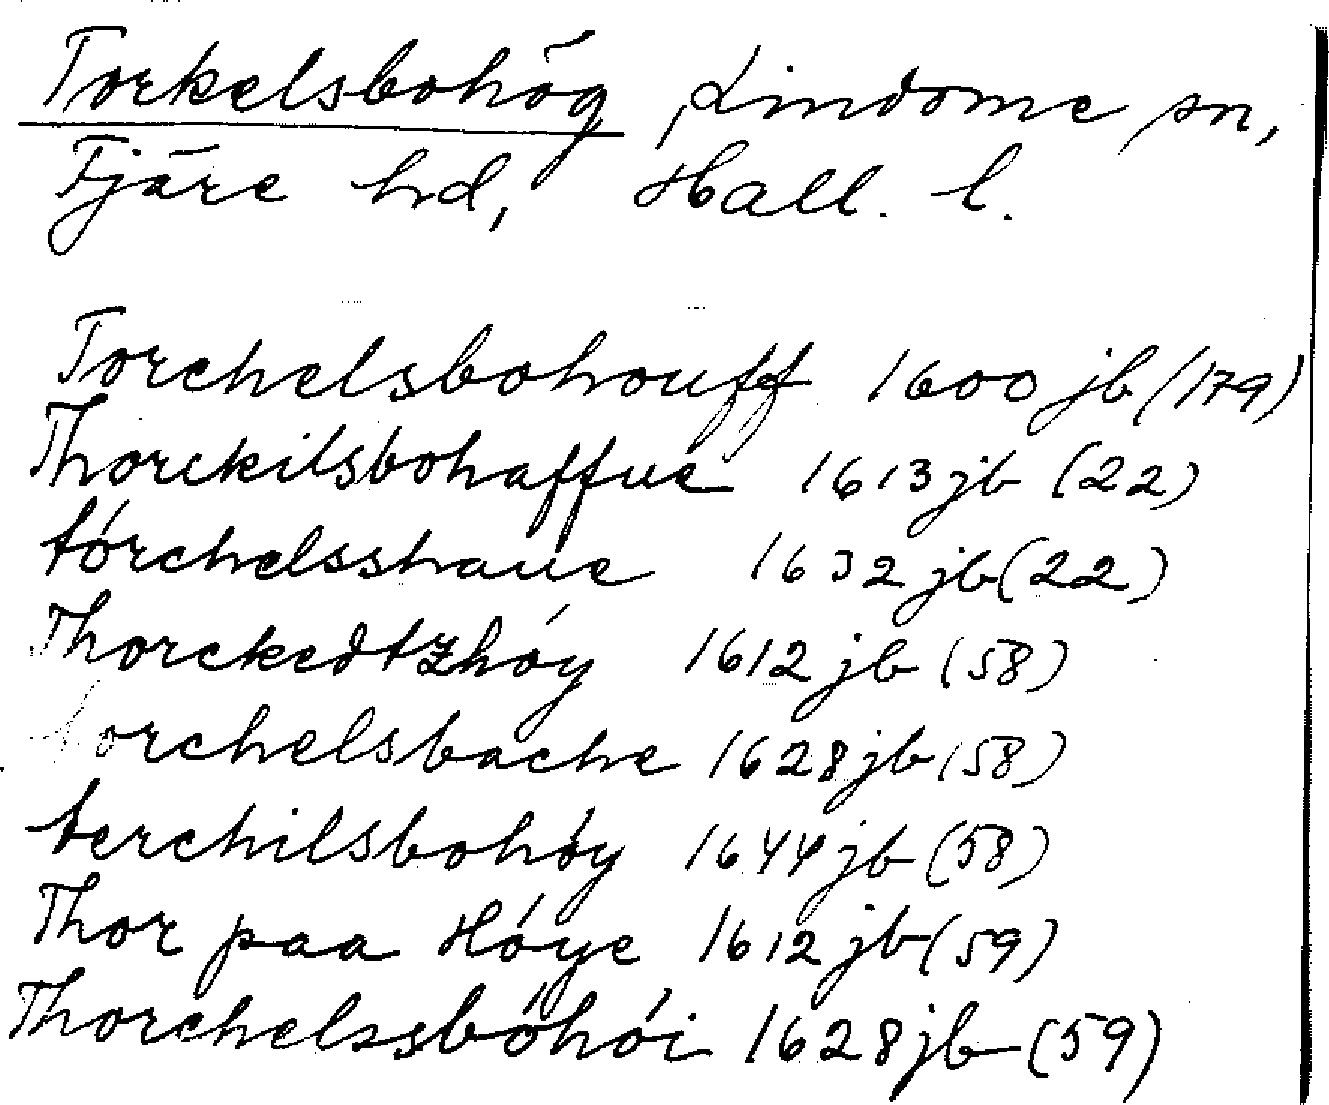 Torkelsbohög, Lindome sn,
Fjäre hd, Hall. l.
Torchelsbohouff 1600 jb (179)
Thorckilsbohaffue 1613 jb (22)
tórchelsshaue 1632 jb (22)
Thorckedtzhóy 1612 jb (58)
torchelsbache 1628 jb (58)
terchilsbohóy 1644 jb (58)
Thor paa Hóye 1612 jb (59)
Thorchelssbóhói 1628 jb (59)